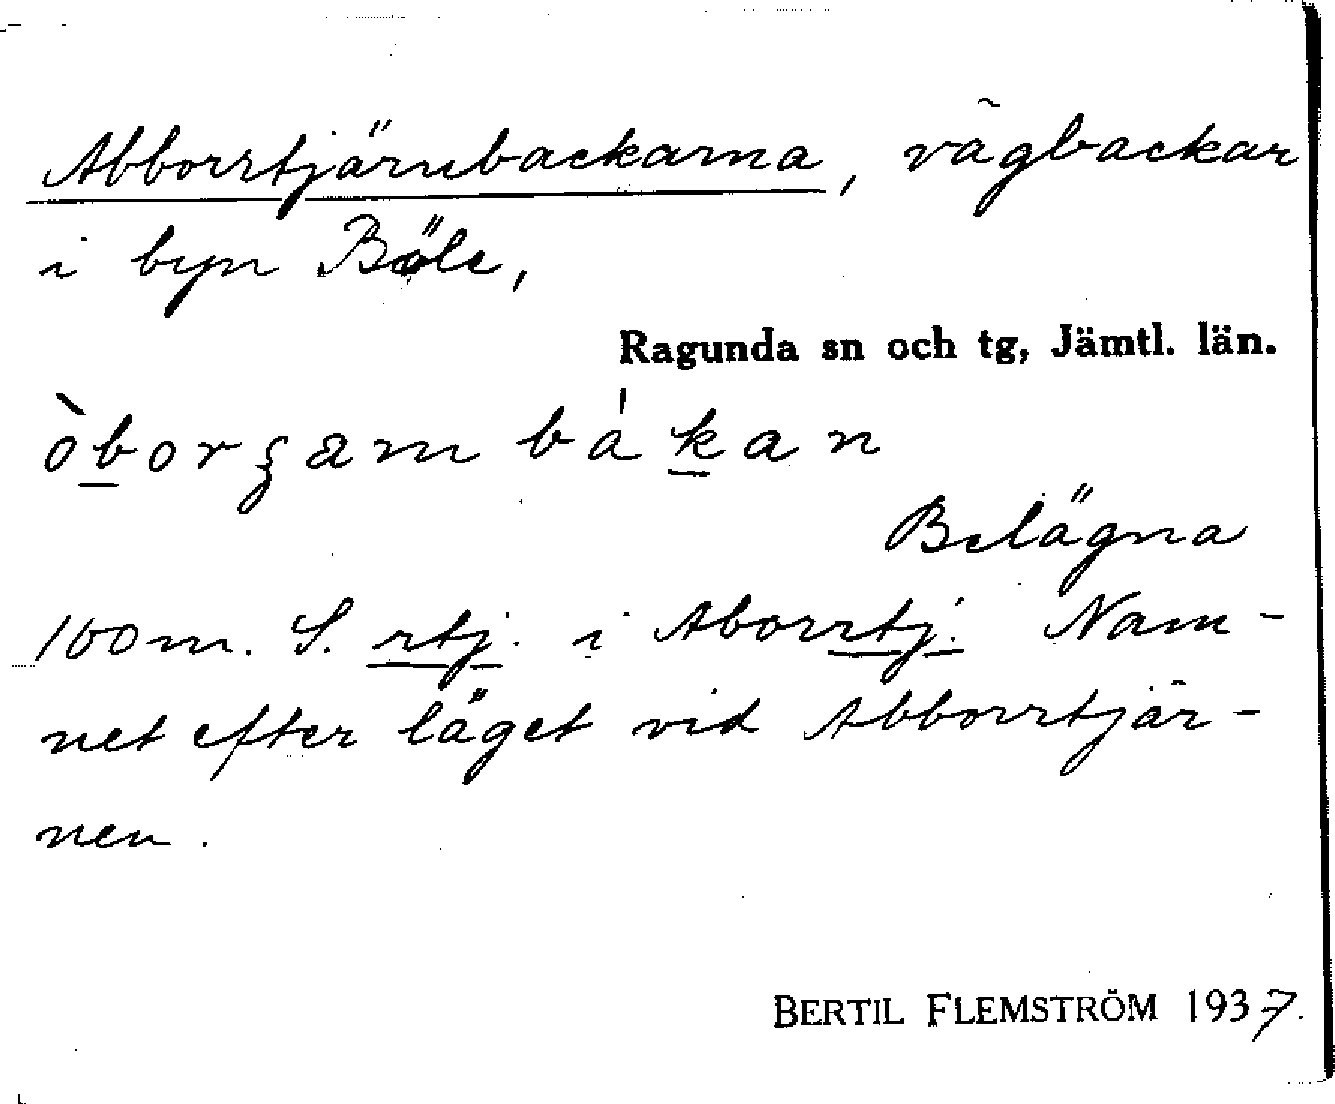 Abborrtjärnbackarna, vägbackar
i byn Böle,
Ragunda sn och tg, Jämtl. län.
òborʒam bákan
Belägna
100 m. S. rtj. i Aborrtj. Nam-
net efter läget vid Abborrtjär-
nen.
BERTIL FLEMSTRÖM 1937.